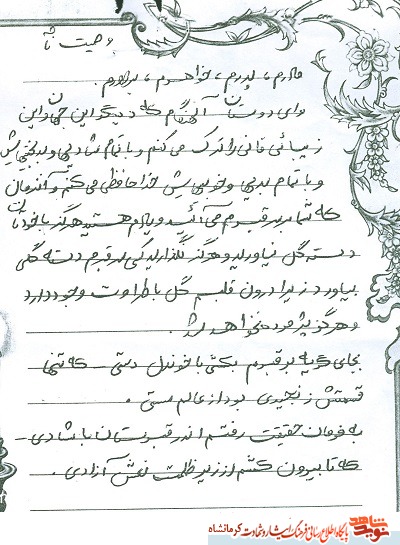 وصیت نامه
مادرم، پدرم، خواهرم، برادرم.
وای دوستان آنگاه که دیگر این جهان و این
زیبائی فانی را ترک می کنم و با تمام شادیها و بدبختی اش
و با تمام بدی و خوبی اش خدا حافظی می کنم و آن زمان
که شما بر قبرم می آئید و پدرم هستید هرگز با خودتان
دسته گل نیاورید و هرگز نگذارید کسی بر قبرم دسته گلی
بیاورد زیرا درون قلبم گل با طراوت وجود دارد
و هرگز پژمرده نخواهد شد.
بجای گریه بر قبرم بکنی با خوندل دستی که تنها
قسمتش زنجیری بود از عالم مستی.
به فرمان حقیقت رفتم اندر قبرستان با شادی
که تا بیرون کشم از زیر ظلمت نعش آزادی.
نوید شاهد
پایگاه اطلاع رسانی فرهنگ ایثار و شهادت کرمانشاه